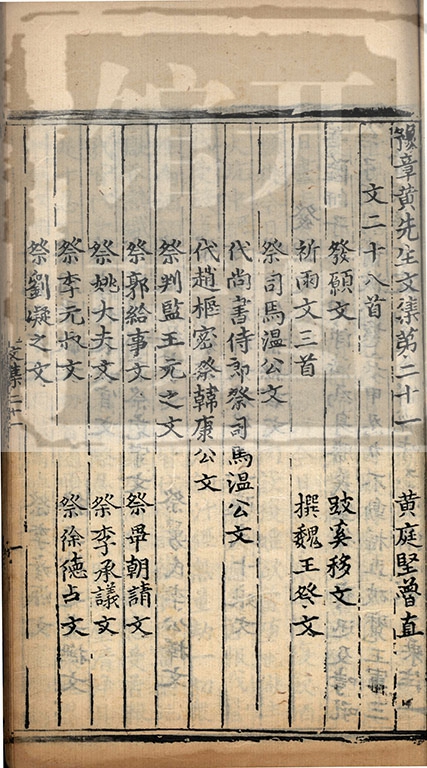 豫章黃先生文集第二十一 黃庭堅魯直
文二十八首
發願文 跂奚移文
祈雨文三首 撰魏王祭文
祭司馬溫公文
代尚書侍郎祭司馬溫公文
代趙樞宻祭韓康公文
祭判監王元之文
祭郭給事文 祭畢朝請文
祭姚大夫文 祭李承議文
祭李元叔文 祭徐德占文
祭劉凝之文
文集二十一